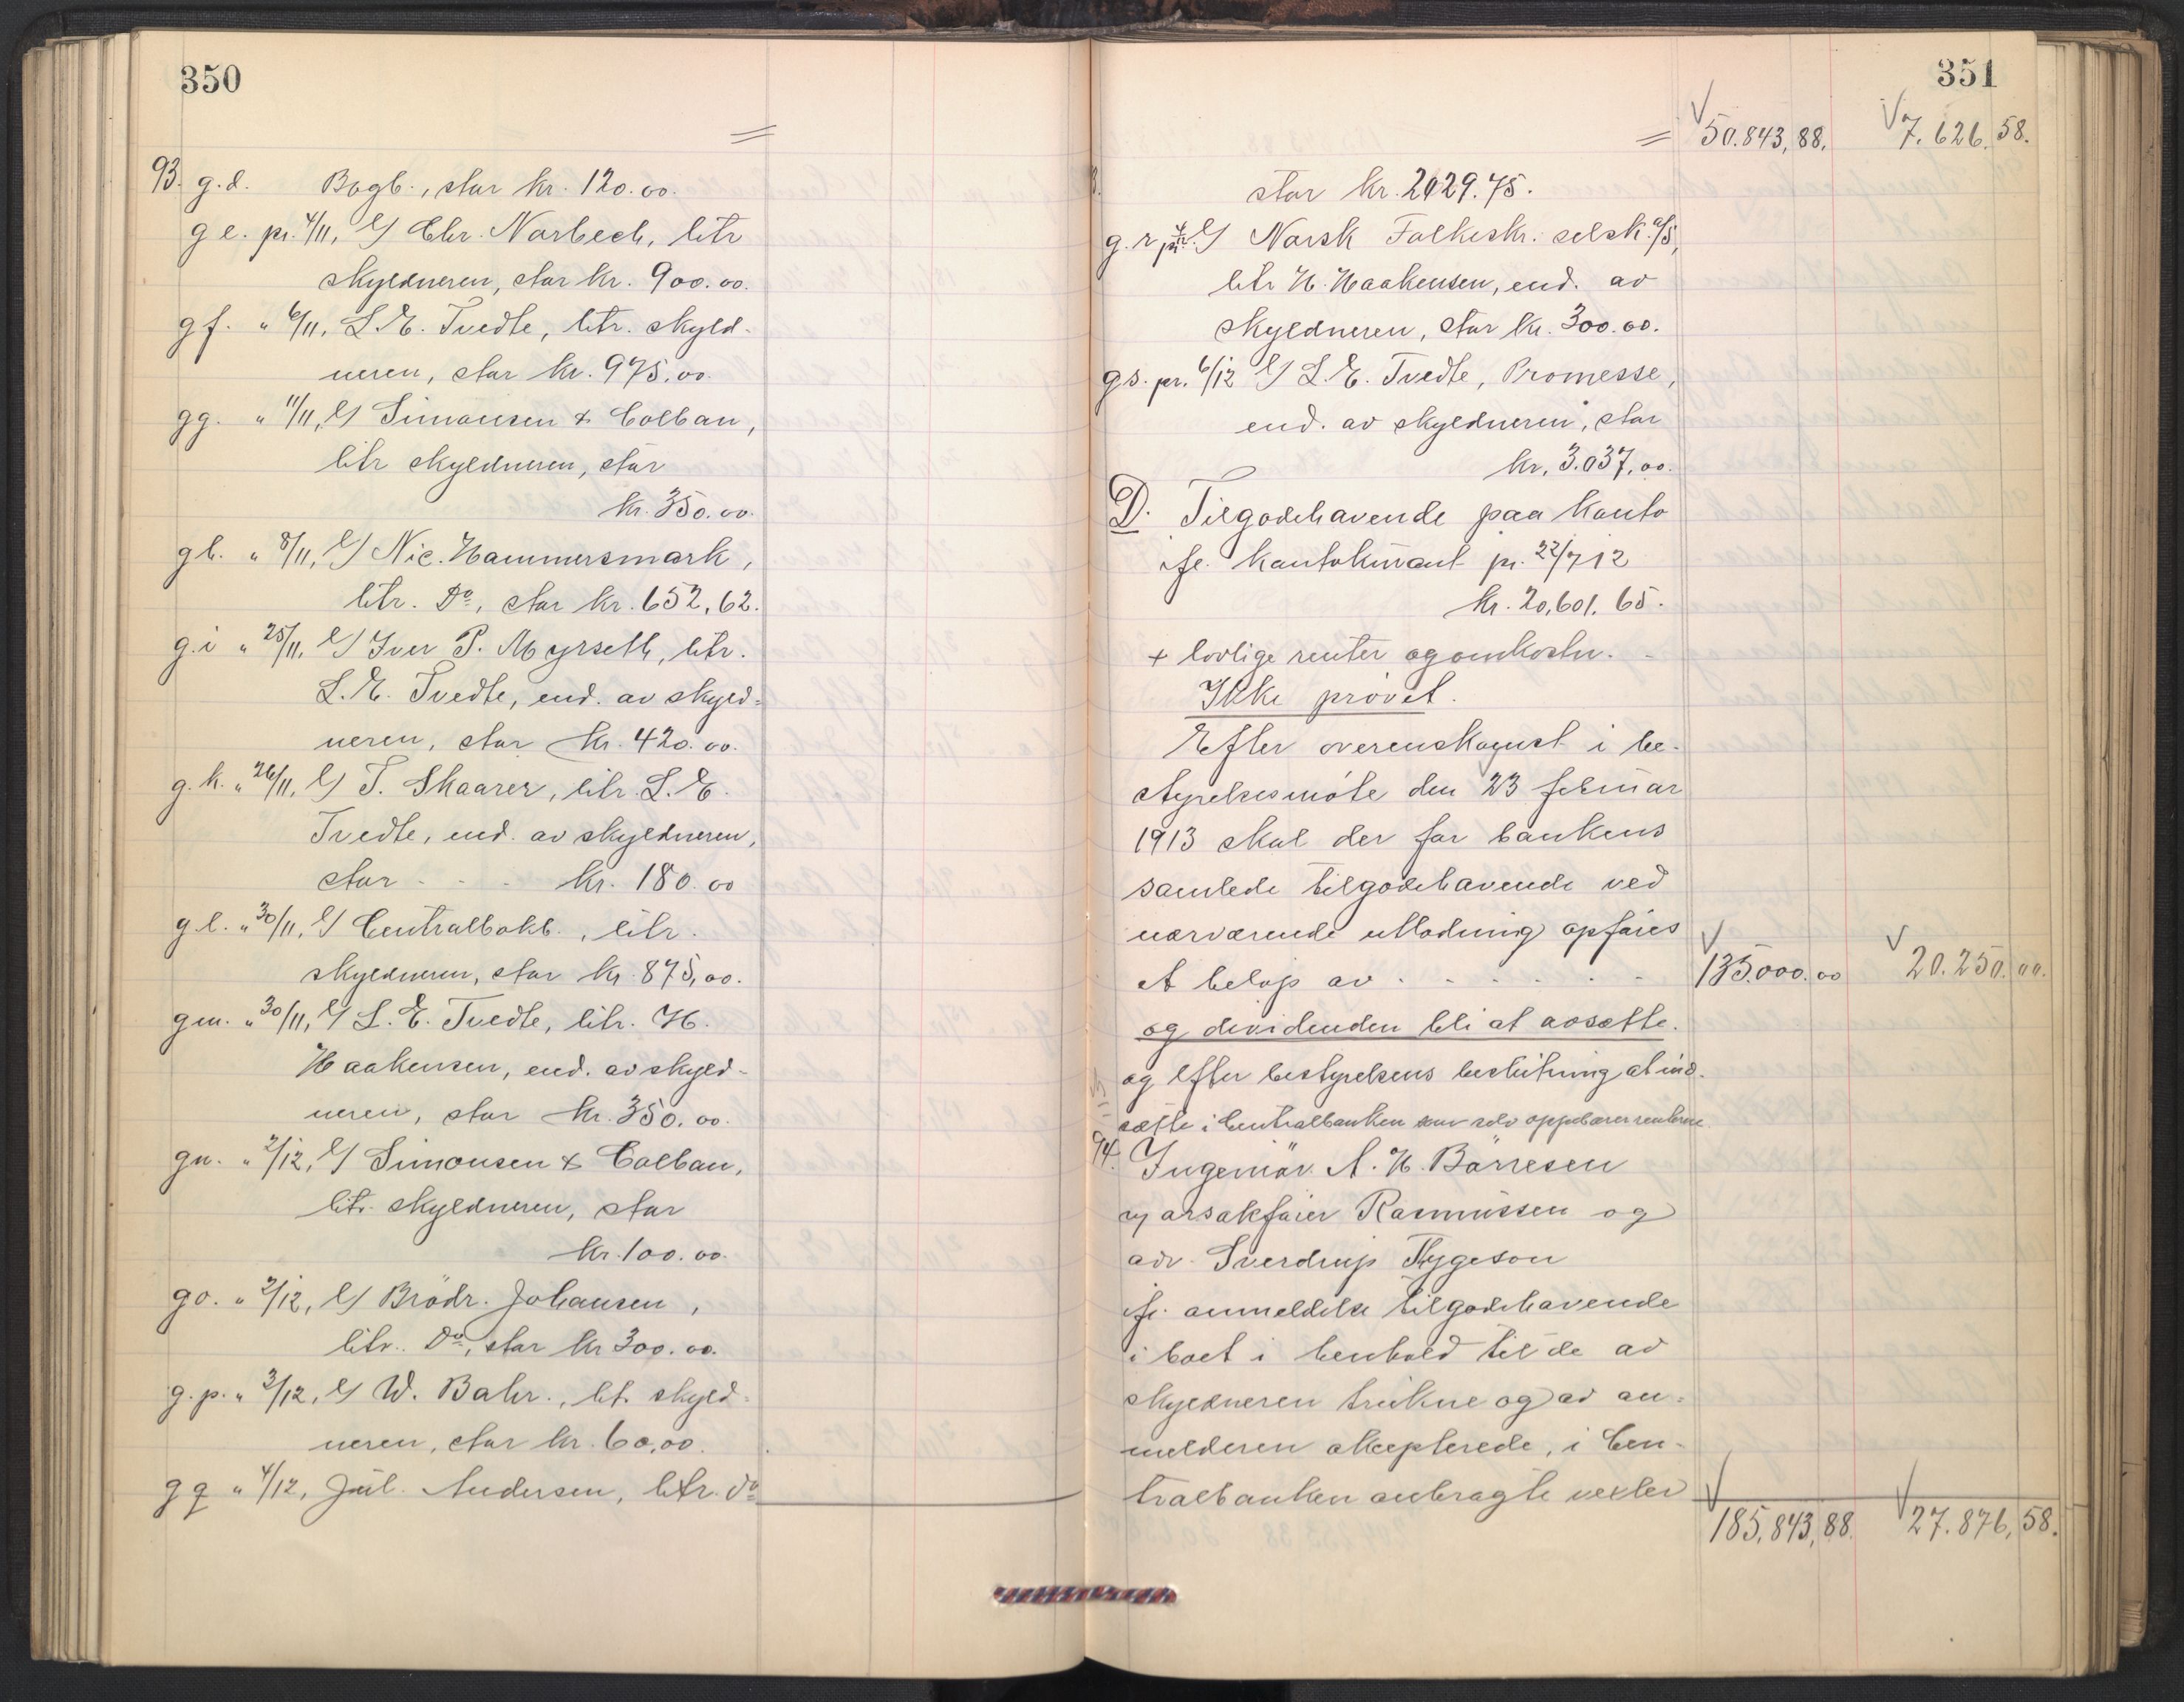 350
93. g.d. Bogb., stor kr. 120.00.
g e. pr. 4/11, Chr. Norbech, litr
skyldneren, stor kr. 900.00.
g f. " 6/11, L. E. Tvedte, litr. skyld-
neren, stor kr. 975,00.
gg. " 11/11, Simonsen & Colban,
litr skyldneren, stor
kr. 350.00.
gh. " 8/11, Nic. Hammersmark,
litr. Do, stor kr. 652,62.
g.i " 25/11, Iver P. Myrseth, litr.
L. E. Tvedte, end. av skyld-
neren, stor kr. 420.00.
g.k. " 26/11, T. Skaarer, litr. L. E.
Tvedte, end. av skyldneren,
stor - - - kr. 180.00
g.l. " 30/11, Centralbokb., litr.
skyldneren, stor kr. 875,00.
gm. " 30/11, L. E. Tvedte, litr. H.
Haakensen, end. av skyld-
neren, stor kr. 350.00.
gn. " 2/12, Simonsen & Colban,
litr. skyldneren, stor
kr. 100.00.
go. " 2/12, Brödr. Johansen,
litr. Do, stor kr 300.00.
g.p. " 3/12, W. Bahr., lit. skyld-
neren, stor kr. 60,00.
g q " 4/12, Jul. Andersen, litr. do
351
= 50.843,88. 7.626,58.
stor kr. 2029.75.
g.r pr. Norsk Folkeskr. selsk. a/s,
litr H. Haakensen, end. av
skyldneren, stor kr. 300.00.
g.s. pr. 6/12 L. E. Tvedte, Promesse,
end. av skyldneren, stor
kr. 3.037,00.
D. Tilgodehavende paa konto
ifl. kontokurant pr. 22/7 12
kr. 20,601.65.
+ lovlige renter og omkostn. -
Ikke prövet.
Efter overenskomst i be-
styrelsesmöte den 23 februar
1913 skal der for bankens
samlede tilgodehavende ved
nærværende utlodning opföres
et belöp av - - - - - - 135.000.00 20.250.00.
og dividenden bli at avsætte.
og efter bestyrelsens beslutning at ind-
sætte i Centralbanken som selv oppebærer renterne.
94. Ingeniör A. H. Börresen
v/ orsakförer Rasmussen og
adv. Sverdrup Thygeson
ifl. anmeldelse tilgodehavende
i boet i henhold til de av
skyldneren trukne og av an-
melderen aksepterede, i Cen-
tralbanken anbragte vexler
185,843,88. 27.876,58.